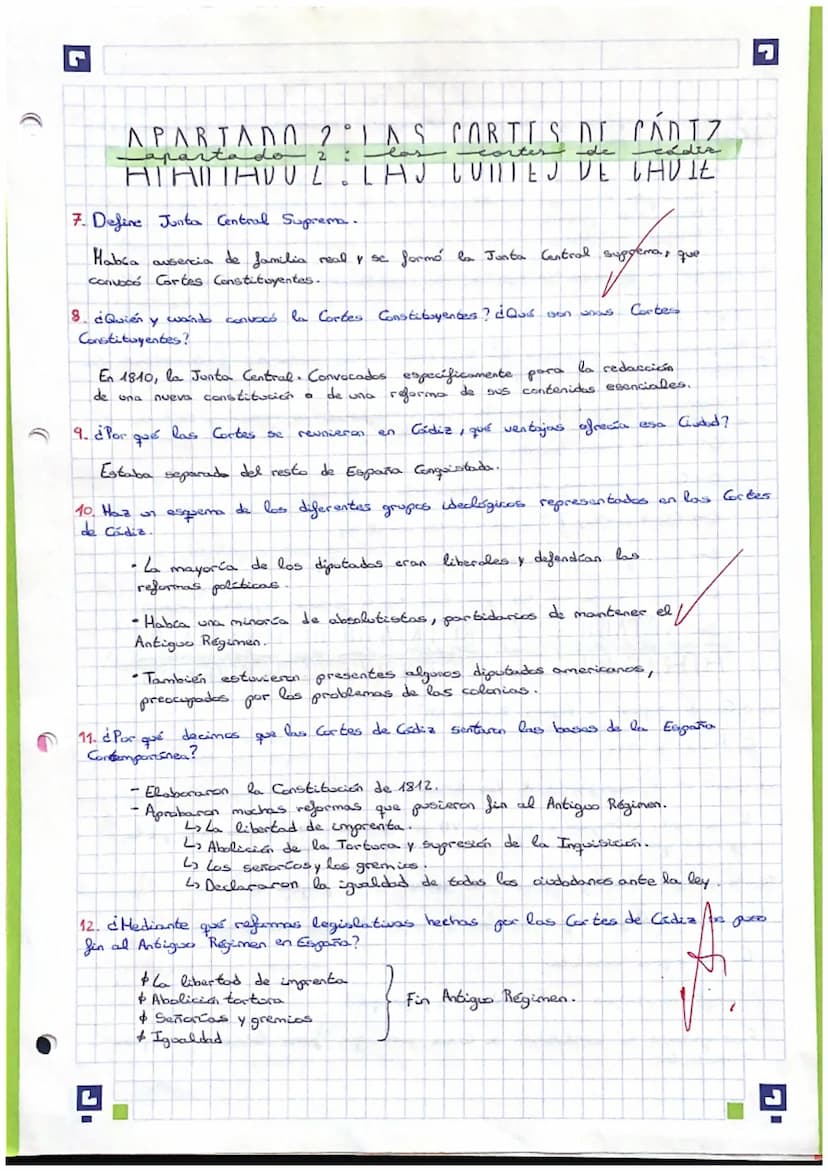 APARTADO 2: LAS CORTES DE CÁDIZ
apartado 2: las cortes de cádiz
7. Define Junta Central Suprema.
Había ausencia de familia real y se formó la Junta Central suprema, que
convocó Cortes Constituyentes.
8. ¿Quién y cuándo convocó la Cortes Constituyentes? ¿Qué son unas Cortes
Constituyentes?
En 1810, la Junta Central. Convocados específicamente para la redacción
de una nueva constitución o de una reforma de sus contenidos esenciales.
9. ¿Por qué las Cortes se reunieron en Cádiz, qué ventajas ofrecía esa Ciudad?
Estaba separado del resto de España Conquistada.
10. Haz un esquema de los diferentes grupos ideológicos representados en las Cortes
de Cádiz.
• La mayoría de los diputados eran liberales y defendían las
reformas políticas.
• Había una minoría de absolutistas, partidarios de mantener el
Antiguo Régimen.
• También estuvieron presentes algunos diputados americanos,
preocupados por los problemas de las colonias.
11. ¿Por qué decimos que las Cortes de Cádiz sentaron las bases de la España
Contemporánea?
- Elaboraron la Constitución de 1812.
- Aprobaron muchas reformas que pusieron fin al Antiguo Régimen.
↳ La libertad de imprenta.
↳ Abolición de la Tortura y supresión de la Inquisición.
↳ Los señoríos y los gremios.
↳ Declararon la igualdad de todos los ciudadanos ante la ley.
12. ¿Mediante qué reformas legislativas hechas por las Cortes de Cádiz se puso
fin al Antiguo Régimen en España?
La libertad de imprenta
Abolición tortura
Señoríos y gremios
Igualdad
Fin Antiguo Régimen.